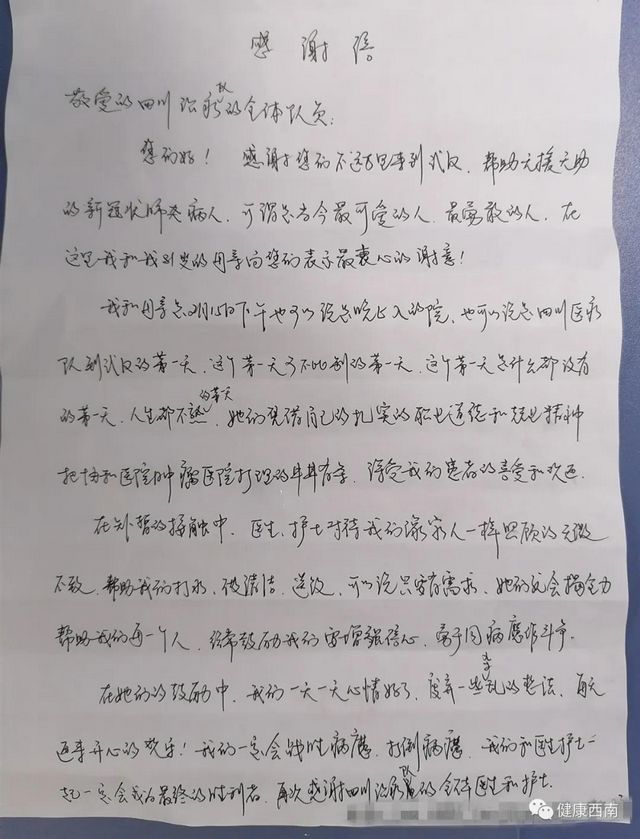 感谢信
敬爱的四川治疗队的全体队员:
您们好! 感谢您们不远万里来到武汉、帮助无援无助
的新冠状肺炎病人,可谓是当今最可爱的人、最勇敢的人,在
这里我和我 的母亲向您们表示最衷心的谢意!
我和母亲是2月15日下午也可以说是晚上入的院、也可以说是四川医疗
队到武汉的第一天,这个第一天可不比别的第一天,这个第一天是什么都没有
的第一天,人生都不熟的第一天,她们凭借自己的扎实的职业道德和 精神
把协和医院肿瘤医院打理的井井有条,深受我们患者的喜爱和欢迎。
在短暂的接触中,医生、护士对待我们像家人一样照顾的无微
不致,帮助我们打水、做清洁、送饭,可以说只要有需求,她们总会揭全力
帮助我们每一个人,经常鼓励我们要增强信心,勇于同病魔作斗争。
在她们的鼓励中,我们一天一天心情好了,废弃一些杂乱的想法,每天
迎来开心的欢乐!我们一定会战胜病魔,打倒病魔,我们和医生护士一
起一定会成为最终的胜利者,再次感谢四川治疗队的全体医生和护士。
健康西南